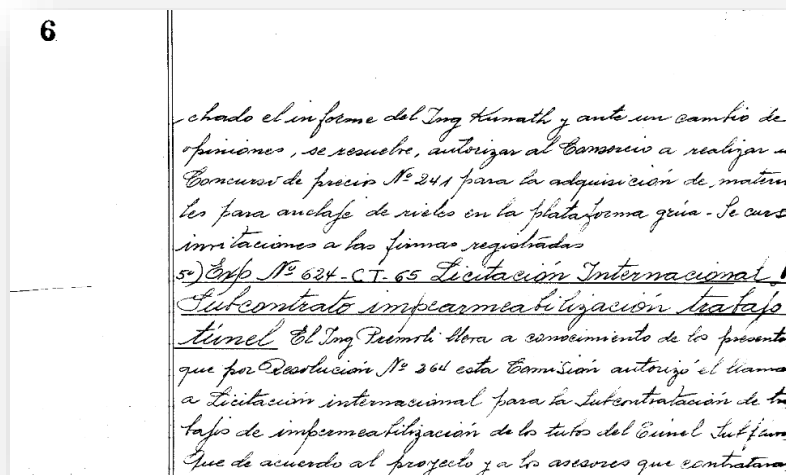 6
chado el informe del Ing Kunath y ante un cambio de
opiniones, se resuelve, autorizar al Consorcio a realizar
Concurso de precio Nº 241 para la adquisición de materia
les para anclaje de rieles en la plataforma grúa - Se curs
invitaciones a las firmas registradas
5º) Exp Nº 624-CT-65 Licitación Internacional
Subcontrato impearmeabilización trabajo
túnel El Ing Premoli lleva a conocimiento de los presente
que por Resolución Nº 264 esta Comisión autorizó el llama
a Licitación internacional para la Subcontratación de tra
bajos de impermeabilización de los tubos del Túnel Subfluv
Que de acuerdo al proyecto y a los asesores que contratara